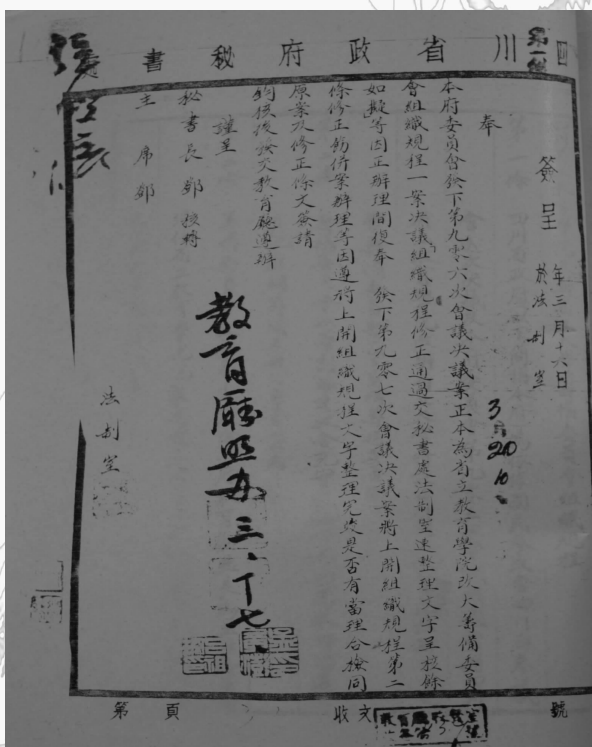 四川省政府秘書
簽呈
年三月十六日
於法制室
奉
本府委員會發下第九零六次會議決議案正本為省立教育學院改大籌備委員
會組織規程一案決議組織規程修正通過交秘書處法制室速整理文字呈核餘
如擬等因正辦理間復奉 發下第九零七次會議決議案將上開組織規程第二
條修正飭併案辦理等因遵將上開組織規程文字整理完竣是否有當理合檢同
原案及修正條文簽請
鈞核後發交教育廳遵辦
謹呈
秘書長鄧 核轉
主席鄧
法制室
教育廳照办 三、十七
3 20 10
收文 號
第 頁